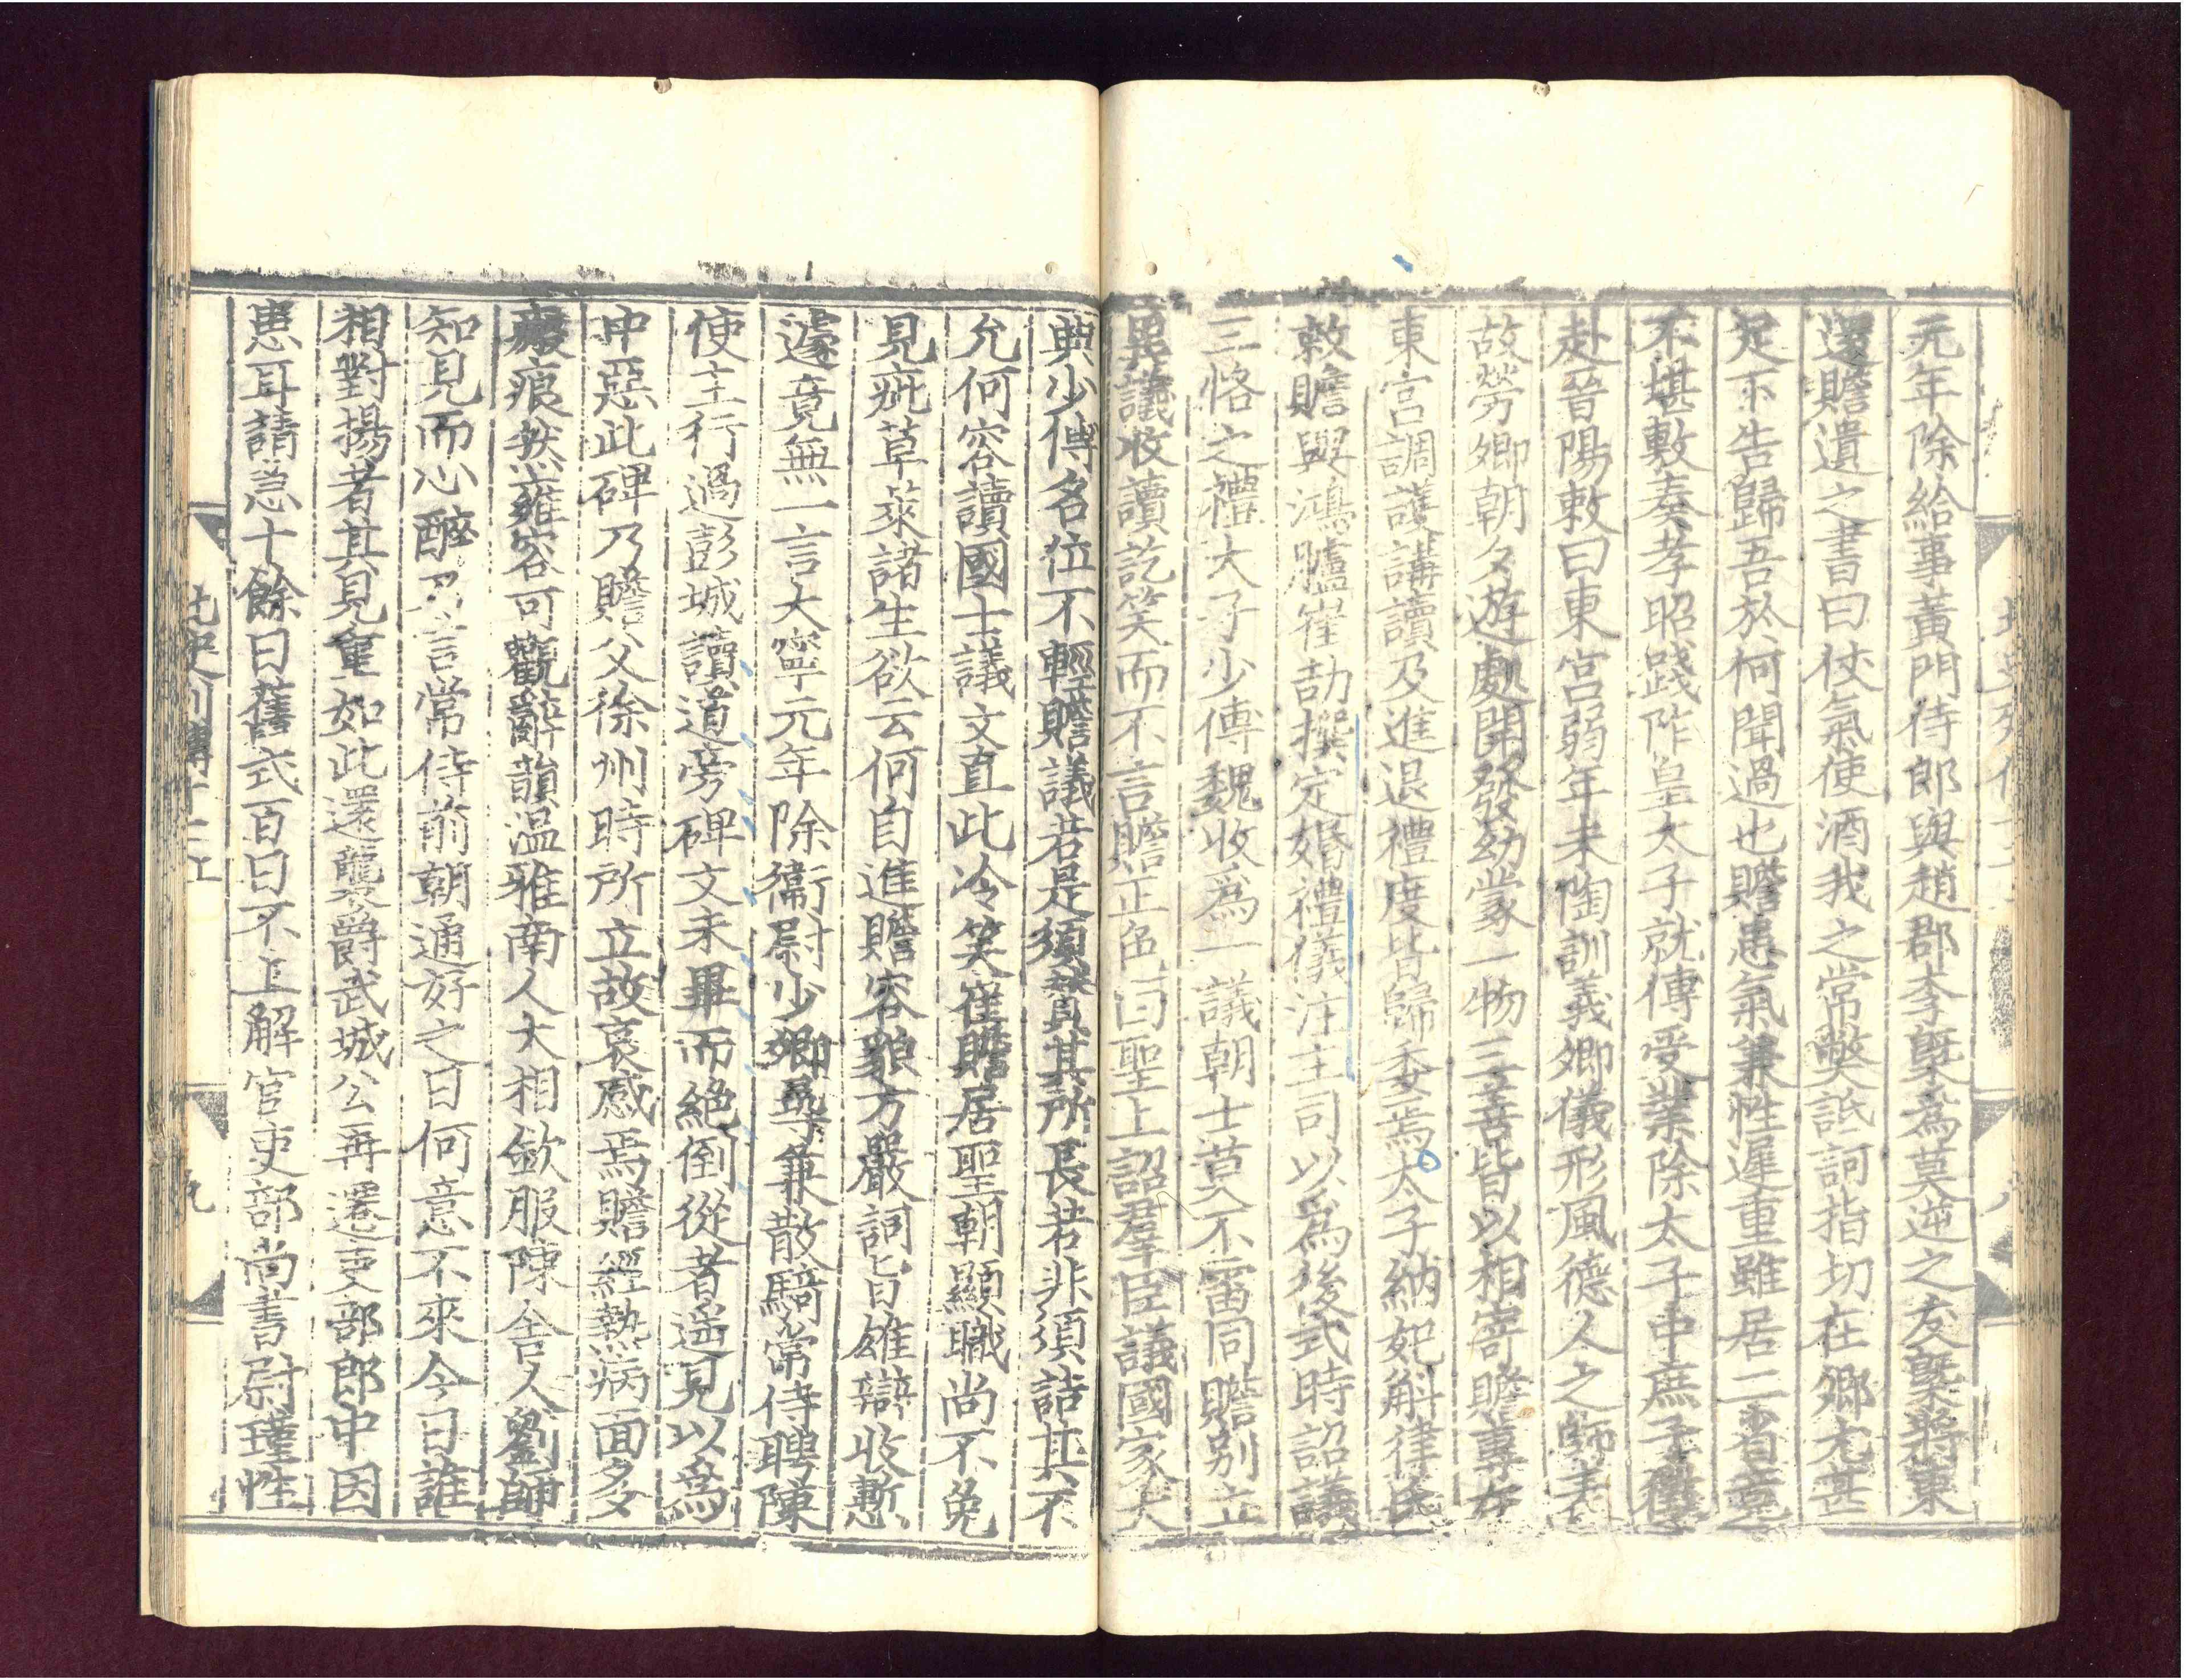 元年除給事黃門侍郎與趙郡李槩爲莫逆之友槩將東
還贍遺之書曰仗氣使酒我之常弊詆訶指切在卿尤甚
足下告歸吾於何聞過也贍患氣兼性遲重雖居二省竟
不堪敷奏孝昭踐阼皇太子就傅受業除太子中庶子徵
赴晉陽敕曰東宮弱年未陶訓義卿儀形風德人之師表
故勞卿朝夕遊處開發幼蒙一物三善皆以相寄贍專在
東宮調護講讀及進退禮度皆歸委焉太子納妃斛律氏
敕贍與鴻臚崔劼撰定婚禮儀注主司以爲後式時詔議
三恪之禮太子少傅魏收爲一議朝士莫不雷同贍别立
異議收讀訖笑而不言贍正色曰聖上詔羣臣議國家大
典少傅名位不輕贍議若是須贊其所長若非須詰其不
允何容讀國士議文直此冷笑崔贍居聖朝顯職尚不免
見疵草萊諸生欲云何自進贍容貌方嚴詞旨雄辯收慙
遽竟無一言大寧元年除衞尉少卿尋兼散騎常侍聘陳
使主行過彭城讀道旁碑文未畢而絕倒從者遥見以爲
中惡此碑乃贍父徐州時所立故哀感焉贍經熱病面多
瘢痕然雍容可觀辭韻温雅南人大相欽服陳舍人劉師
知見而心醉乃言常侍前朝通好之日何意不來今日誰
相對揚者其見重如此還襲爵武城公再遷吏部郎中因
患耳請急十餘日舊式百日不上解官吏部尚書尉瑾性
北史列傳十二
九